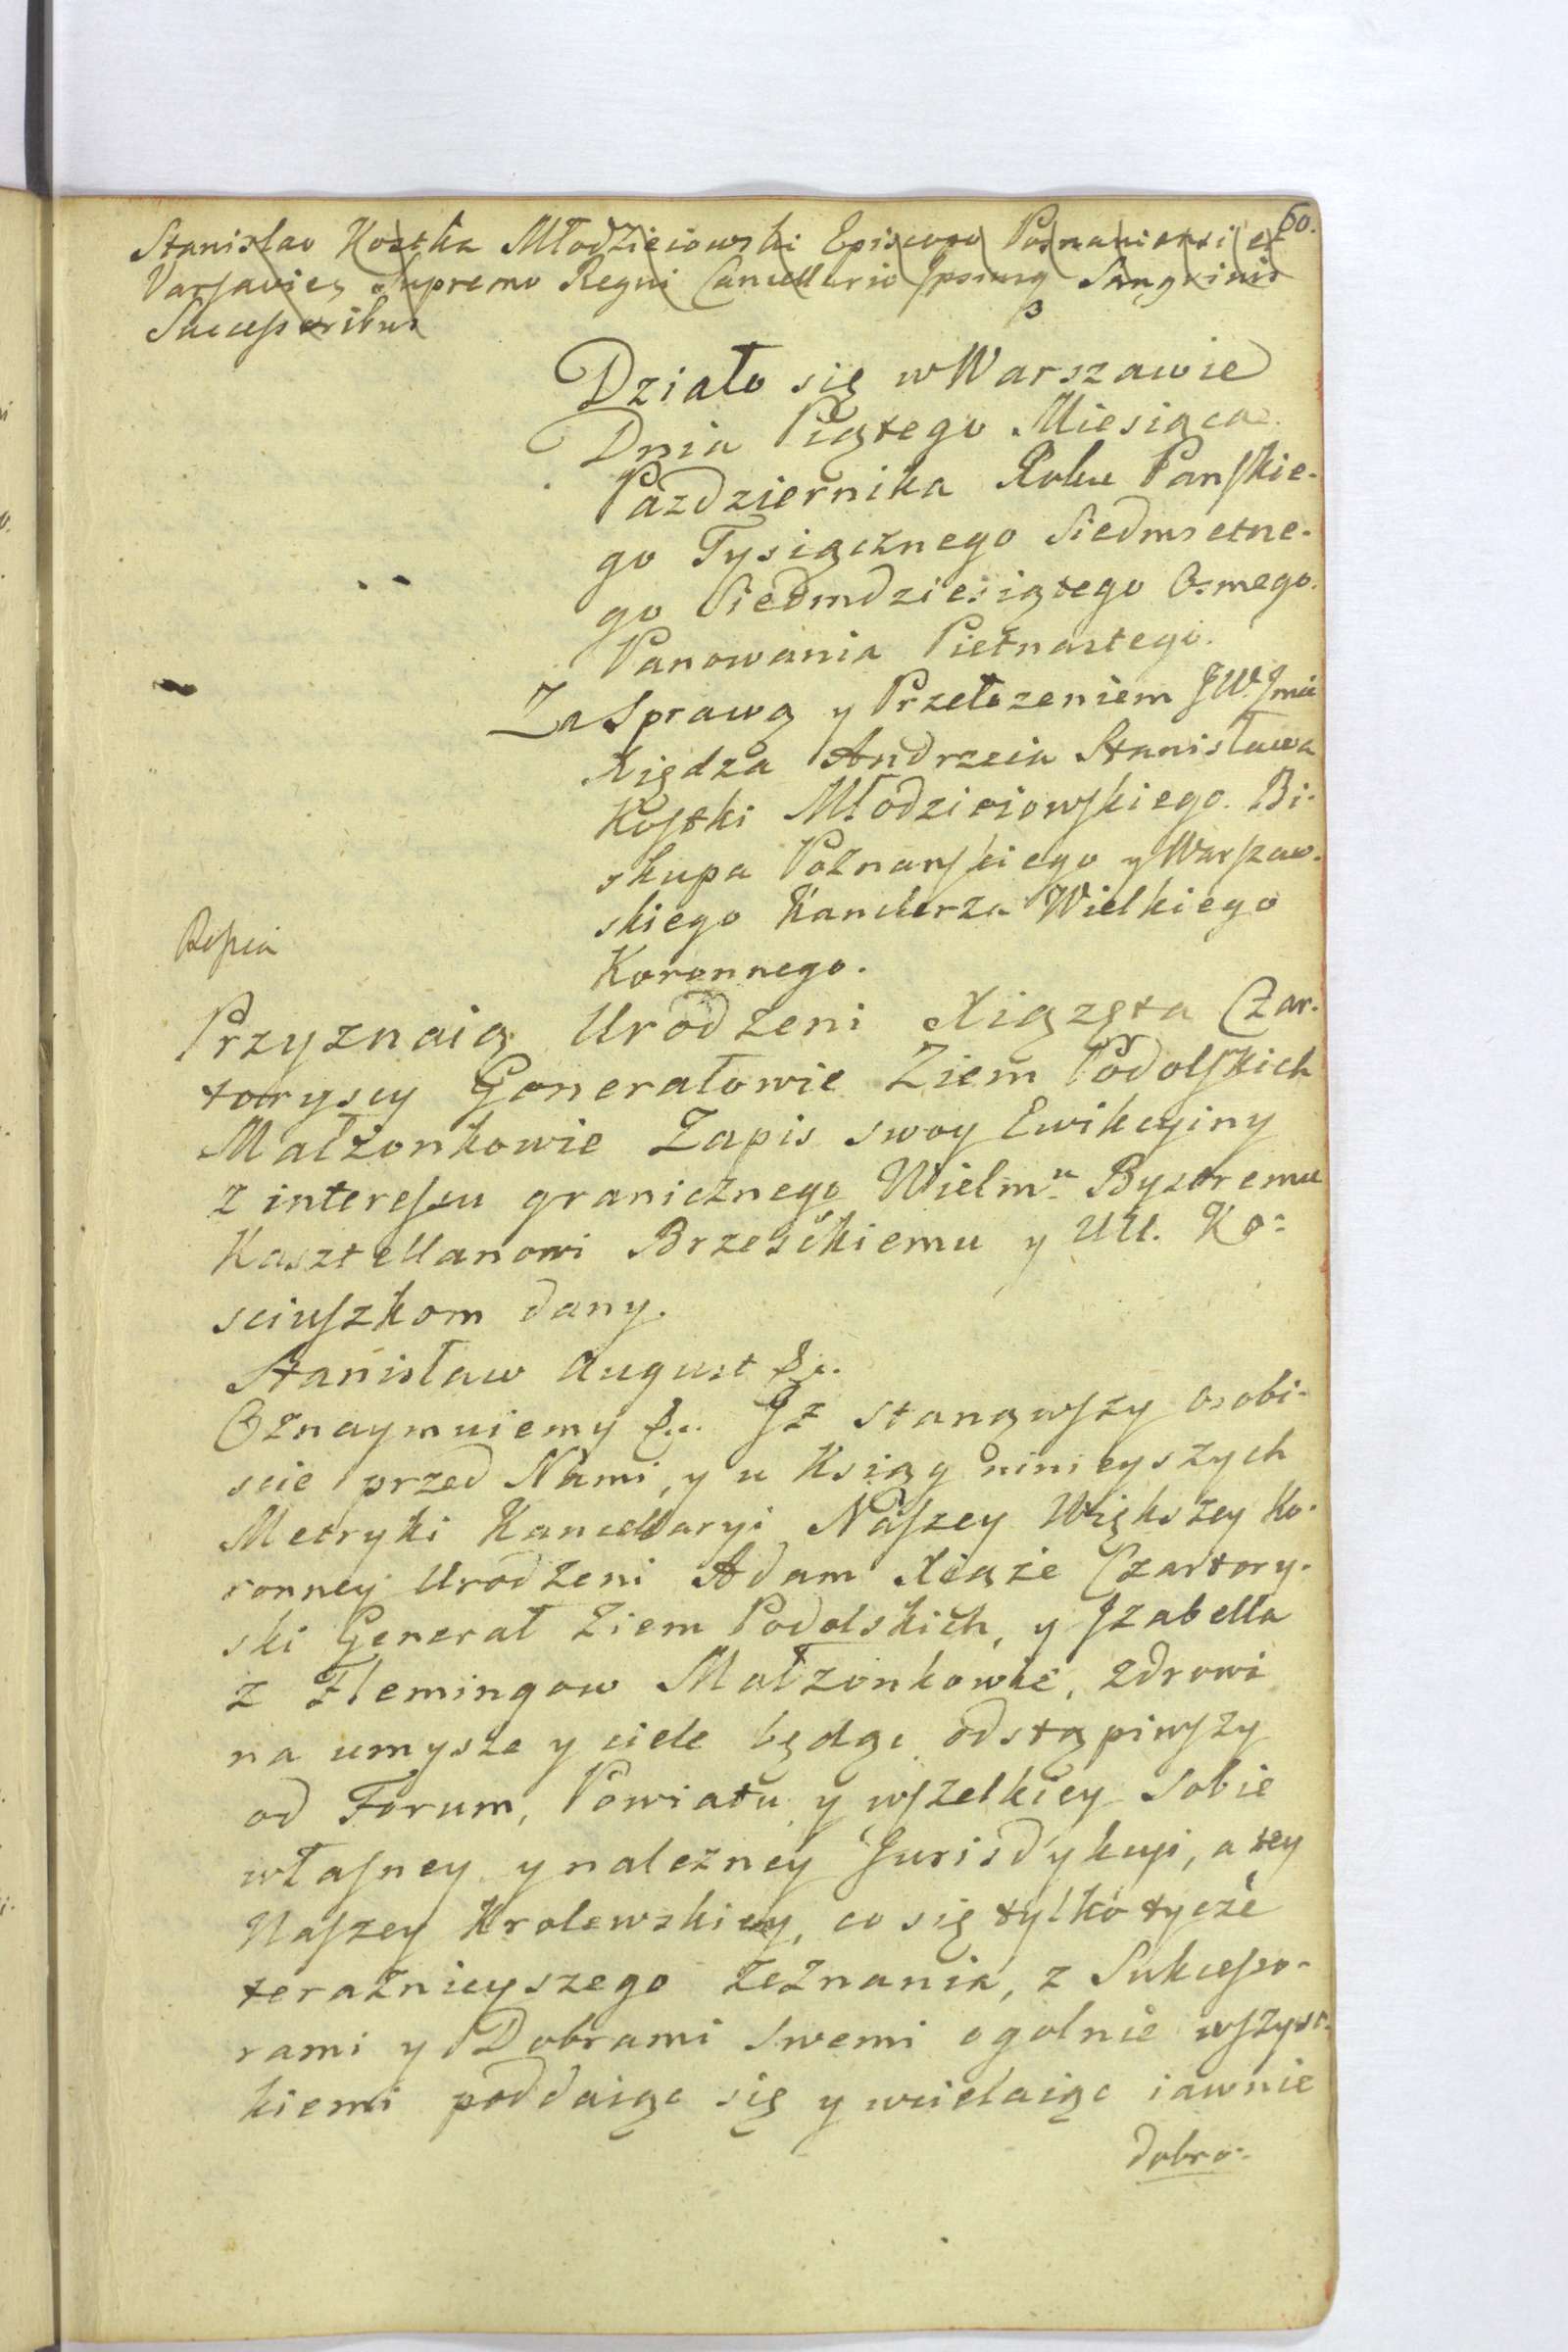 60.
Stanislao Kostka Młodzieiowski Episcopo Posnaniensi et
Varsavien Supremo Regni Cancellario Ipsiusq Sangvinis
Successoribus
Działo się w Warszawie
Dnia Piątego Miesiąca
Pazdziernika Roku Panskie-
go Tysiącznego Siedmsetne-
go Siedmdziesiątego Osmego.
Panowania Pietnastego.
Za Sprawą y Przełozeniem JW. Jmci
Xiędza Andrzeia Stanisława
Kostki Młodzieiowskiego. Bi-
skupa Poznanskiego y Warszaw-
skiego Kanclerza Wielkiego
Koronnego.
Przyznaią Urodzeni Xiązęta Czar-
toryscy Generałowie Ziem Podolskich
Małzonkowie Zapis swoy Ewikcyiny
z interessu granicznego Wielmu. Bystremu
Kasztellanowi Brzesckiemu y UU. Ko-
sciuszkom dany.
Stanisław August &c.
Oznaymuiemy &c. Jż stanąwszy osobi-
scie przed Nami, y u Ksiąg ninieyszych
Metryki Kancellaryi Naszey Większey Ko-
ronney Urodzeni Adam Xiąże Czartory-
ski Generał Ziem Podolskich, y Jzabella
z Flemingow Małzonkowie, zdrowi
na umysle y ciele będąc odstąpiwszy
od Forum, Powiatu y wszelkiey sobie
własney y nalezney Jurisdykcyi, a tey
Naszey Krolewskiey, co się tylko tycze
teraznieyszego Zeznania, z Sukcesso-
rami y Dobrami swemi ogolnie wszyst-
kiemi poddaiąc się y wcielaiąc iawnie
dobro-